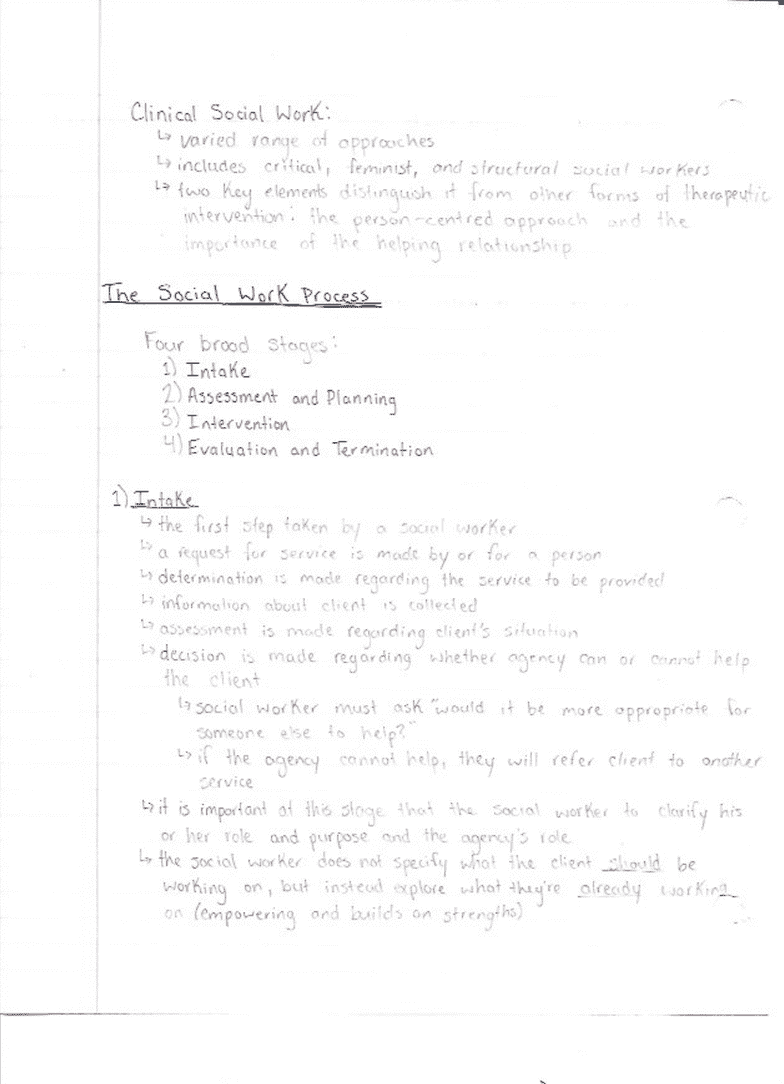 Clinical Social Work:
↳ varied range of approaches
↳ includes critical, feminist, and structural social workers
↳ two key elements distinguish it from other forms of therapeutic
intervention: the person-centred approach and the
importance of the helping relationship
The Social Work Process
Four broad stages:
1) Intake
2) Assessment and Planning
3) Intervention
4) Evaluation and Termination
1) Intake
↳ the first step taken by a social worker
↳ a request for service is made by or for a person
↳ determination is made regarding the service to be provided
↳ information about client is collected
↳ assessment is made regarding client's situation
↳ decision is made regarding whether agency can or cannot help
the client
↳ social worker must ask "would it be more appropriate for
someone else to help?"
↳ if the agency cannot help, they will refer client to another
service
↳ it is important at this stage that the social worker to clarify his
or her role and purpose and the agency's role
↳ the social worker does not specify what the client should be
working on, but instead explore what they're already working
on (empowering and builds on strengths)